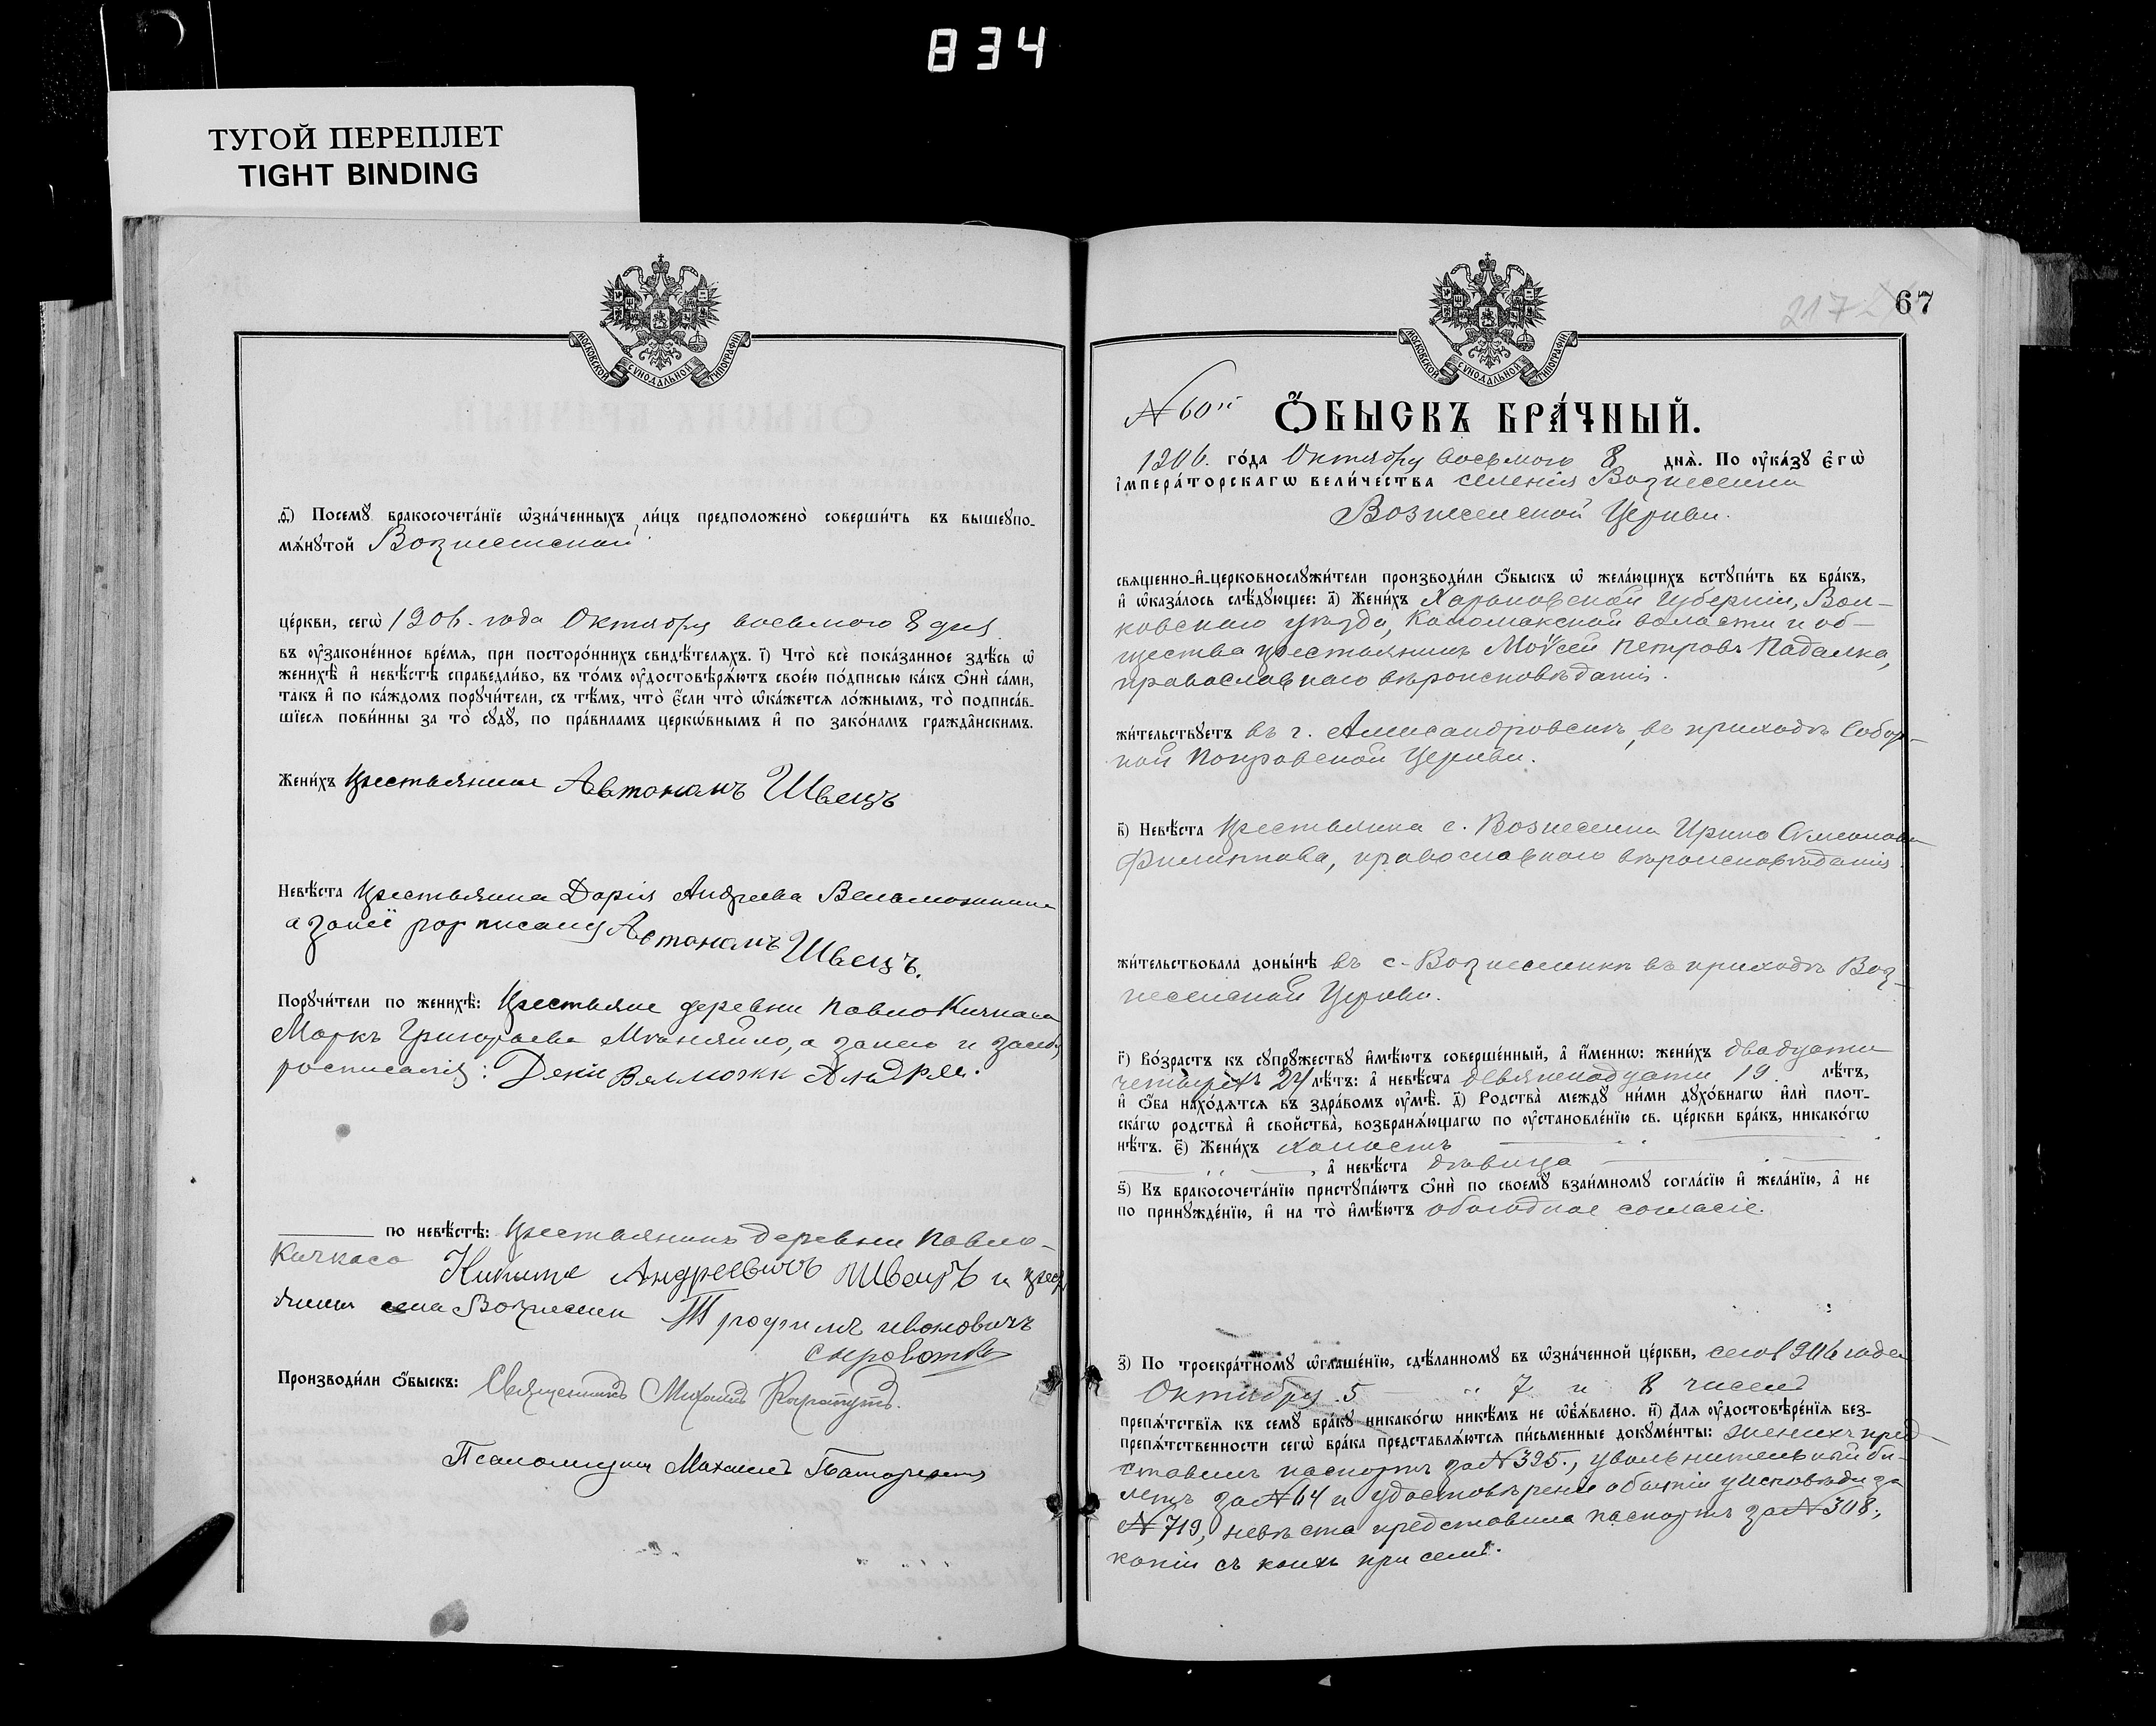 834
ТУГОЙ ПЕРЕПЛЕТ
TIGHT BINDING
МОСКОВСКОЙ СѴНОДАЛЬНОЙ ТИПОГРАФІИ
ѳ҃) Посемꙋ бракосочета́нїе ѡ҆зна́ченныхъ ли́цъ предположено̀ соверши́ть въ вышеꙋпо-
мѧ́нꙋтой Вознесенской
це́ркви, сегѡ̀ 1906. года Октября восьмого 8 дня
въ ᲂу҆зако́ненное вре́мѧ, при посторо́ннихъ свидѣ́телѧхъ. і҃) Что̀ всѐ пока́занное здѣ́сь ѡ҆
женихѣ̀ и҆ невѣ́стѣ справедли́во, въ то́мъ ᲂу҆достовѣрѧ́ютъ свое́ю по́дписью ка́къ ѻ҆нѝ са́ми,
та́къ и҆ по ка́ждомъ порꙋчи́тели, съ тѣ́мъ, что̀ є҆́сли что̀ ѡ҆ка́жетсѧ ло́жнымъ, то̀ подписа́в-
шїесѧ пови́нны за то̀ сꙋдꙋ̀, по пра́виламъ церкѡ́внымъ и҆ по зако́намъ гражда̂нскимъ.
Жени́хъ крестьянинъ Автономъ Швецъ
Невѣ́ста крестьянка Дарія Андреева
а за неё росписался Автономъ Швецъ.
Порꙋчи́тели по женихѣ̀: Крестьяне деревни Павло Кичкаса
Маркъ Григорьевъ а за него и за себя
росписался: Андрей.
по невѣ́стѣ: Крестьянинъ деревни Павло-
Кичкаса Никита Андреевичъ Швецъ и крес
села Вознесенки Трофимъ ивановичъ
сыроватка
Производи́ли ѻ҆́быскъ: Священникъ Михаилъ
Псаломщикъ Михаилъ
217
67
МОСКОВСКОЙ СѴНОДАЛЬНОЙ ТИПОГРАФІИ
№ 60й ѺБЫСКЪ БРА́ЧНЫЙ.
1906. го́да Октября восьмого 8 днѧ̀. По ᲂу҆ка́зꙋ є҆гѡ̀
і҆мпера́торскагѡ вели́чества селенія Вознесенки
Вознесенской Церкви.
свѧщенно-и҆-церковнослꙋжи́тели производи́ли ѻ҆́быскъ ѡ҆ жела́ющихъ встꙋпи́ть въ бра́къ,
и҆ ѡ҆каза́лось слѣ́дꙋющее: а҃) Жени́хъ Харьковской губерніи, Вал-
ковскаго уѣзда, Коломакской волости и об-
щества крестьянинъ Моѵсей Петровъ Падалка,
православнаго вѣроисповѣданія.
жи́тельствꙋетъ въ г. Александровскѣ, въ приходѣ Собор-
ной Покровской Церкви.
в҃) Невѣ́ста Крестьянка с. Вознесенки Ирина Симеонова
Филиппова, православнаго вѣроисповѣданія.
жи́тельствовала доны́нѣ въ с. Вознесенкѣ въ приходѣ Воз-
несенской Церкви.
г҃) Во́зрастъ къ сꙋпрꙋ́жествꙋ и҆мѣ́ютъ соверше́нный, а҆ и҆́меннѡ: жени́хъ двадцати
четырехъ 24 лѣ́тъ: а҆ невѣ́ста девятнадцати 19. лѣ́тъ,
и҆ ѻ҆́ба нахо́дѧтсѧ въ здра́вомъ ᲂу҆мѣ̀. д҃) Родства̀ междꙋ̀ ни́ми дꙋхо́внагѡ и҆лѝ плот-
ска́гѡ родства̀ и҆ сво́йства̀, возбранѧ́ющагѡ по ᲂу҆становле́нїю св. це́ркви бра́къ, никако́гѡ
нѣ́тъ. є҃) Жени́хъ холостъ
, а҆ невѣ́ста дѣвица
ѕ҃) Къ бракосочета́нїю пристꙋпа́ютъ ѻ҆нѝ по своемꙋ̀ взаи́мномꙋ согла́сїю и҆ жела́нїю, а҆ не
по принꙋжде́нїю, и҆ на то̀ и҆мѣ́ютъ обоюдное согласіе.
з҃) По троекра́тномꙋ ѡ҆глаше́нїю, сдѣ́ланномꙋ въ ѡ҆зна́ченной це́ркви, сего 1906 года
Октября 5 " 7 и 8 чиселъ
препѧ́тствїѧ къ семꙋ̀ бра́кꙋ никако́гѡ никѣ́мъ не ѡ҆бъѧ́влено. и҃) Длѧ ᲂу҆достовѣре́нїѧ без-
препѧ́тственности сегѡ̀ бра́ка представлѧ́ютсѧ пи́сьменные докꙋме́нты: женихъ пред-
ставилъ паспортъ за №325., увольнительный би-
летъ за №64 и удостовѣреніе о бытіи у исповѣди за
№719, невѣста представила паспортъ за №308.,
копіи съ коихъ при семъ.